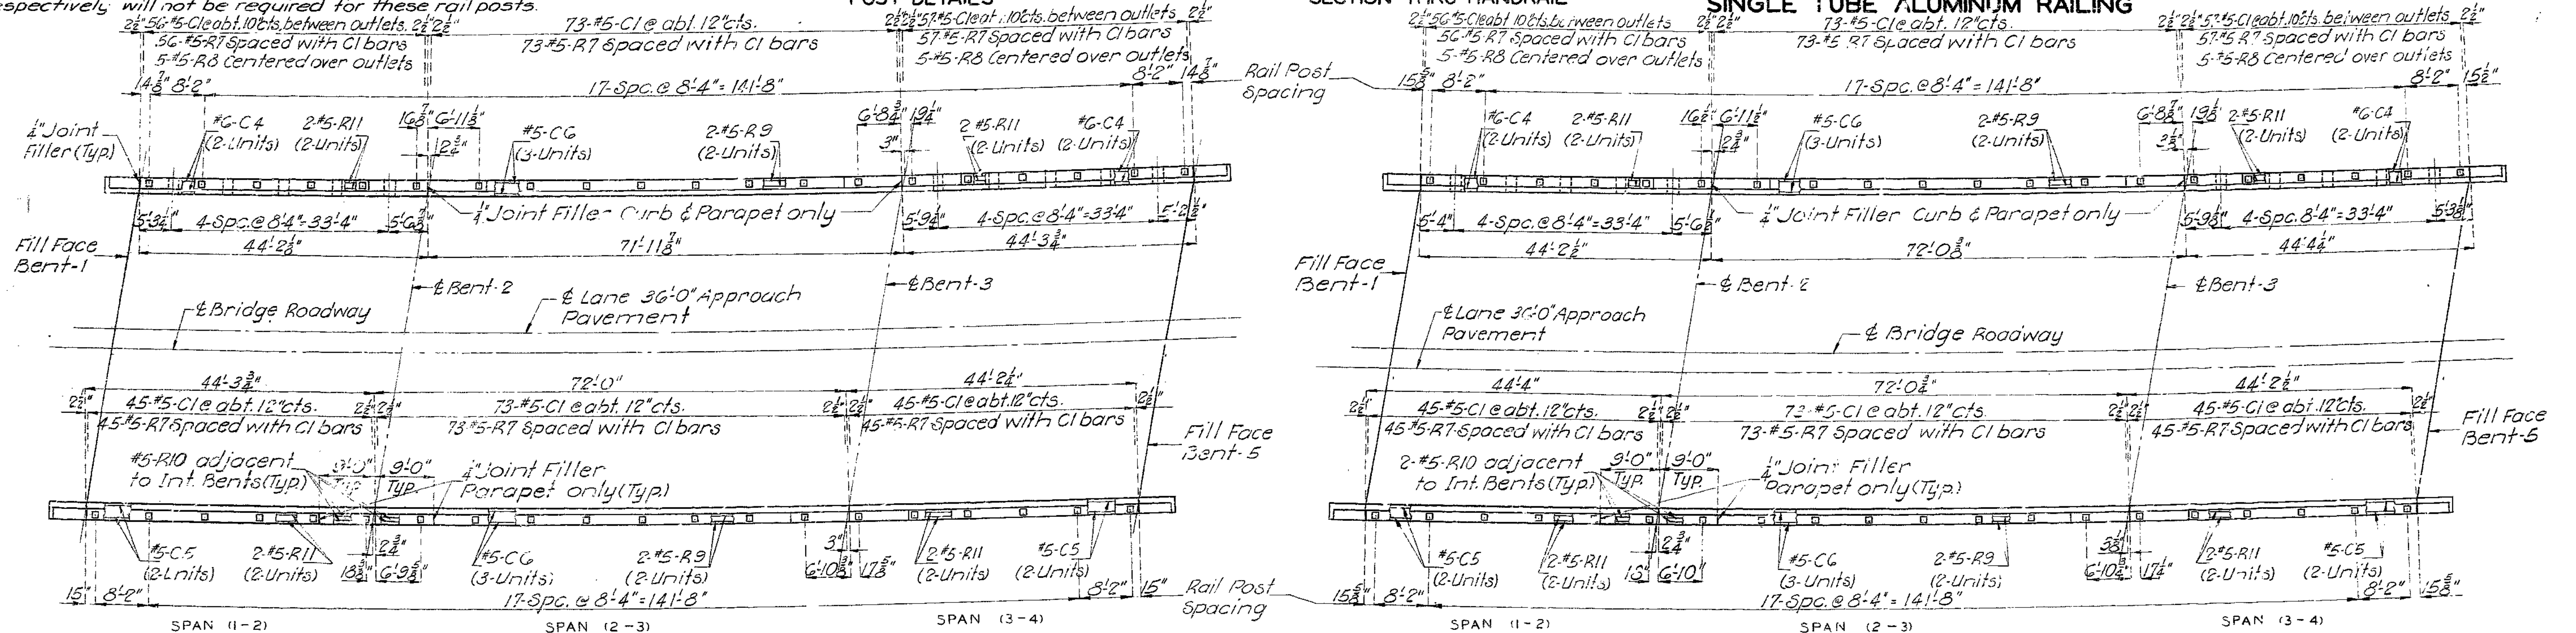 espectively will not be required for these rail posts.
POST DETAILS
SECTION THRU HANDRAIL
SINGLE TUBE ALUMINUM RAILING
2½" 56-#5-C1 @ abt. 10"cts. between outlets 2½" 2½"
73-#5-C1 @ abt. 12"cts.
2½" 2½" 57-#5-C1 @ abt. 10"cts. between outlets 2½"
56-#5-R7 Spaced with C1 bars
73-#5-R7 Spaced with C1 bars
57-#5-R7 Spaced with C1 bars
5-#5-R8 Centered over outlets
5-#5-R8 Centered over outlets
14⅞" 8'-2"
17-Spc. @ 8'-4" = 141'-8"
8'-2" 14⅞"
Rail Post
Spacing
¼" Joint
Filler (Typ.)
#6-C4
(2-Units)
2-#5-R11
(2-Units)
16⅞" 6'-11⅛"
2¾"
#5-C6
(3-Units)
2-#5-R9
(2-Units)
6'-8¾" 19¼"
3"
2 #5-R11
(2-Units)
#6-C4
(2-Units)
5'-3¾" 4-Spc. @ 8'-4" = 33'-4" 5'-6⅞"
¼" Joint Filler Curb & Parapet only
5'-9¼" 4-Spc. @ 8'-4" = 33'-4" 5'-2½"
44'-2⅛"
71'-11⅞"
44'-3¾"
Fill Face
Bent-1
℄ Bent-2
℄ Bent-3
℄ Bridge Roadway
℄ Lane 36'-0" Approach
Pavement
44'-3¾"
72'-0"
44'-2¼"
2½" 45-#5-C1 @ abt. 12"cts. 2½" 2½"
73-#5-C1 @ abt. 12"cts.
2½" 2½" 45-#5-C1 @ abt. 12"cts. 2½"
45-#5-R7 Spaced with C1 bars
73-#5-R7 Spaced with C1 bars
45-#5-R7 Spaced with C1 bars
Fill Face
Bent-5
#5-R10 adjacent
to Int. Bents (Typ.)
9'-0"
Typ.
9'-0"
Typ.
¼" Joint Filler
Parapet only (Typ.)
#5-C5
(2-Units)
2-#5-R11
(2-Units)
2¾"
18⅜" 6'-9⅝"
#5-C6
(3-Units)
2-#5-R9
(2-Units)
3"
6'-10⅜" 17⅝"
2-#5-R11
(2-Units)
#5-C5
(2-Units)
15" 8'-2"
17-Spc. @ 8'-4" = 141'-8"
8'-2" 15"
Rail Post
Spacing
SPAN (1-2)
SPAN (2-3)
SPAN (3-4)
2½" 56-#5-C1 @ abt 10"cts. between outlets 2½" 2½"
73-#5-C1 @ abt. 12"cts.
2½" 2½" 57-#5-C1 @ abt. 10"cts. between outlets 2½"
56-#5-R7 Spaced with C1 bars
73-#5 R7 Spaced with C1 bars
57-#5 R7 Spaced with C1 bars
5-#5-R8 Centered over outlets
5-#5-R8 Centered over outlets
15⅝" 8'-2"
17-Spc. @ 8'-4" = 141'-8"
8'-2" 15½"
#6-C4
(2-Units)
2-#5-R11
(2-Units)
16½" 6'-11½"
2¾"
#5-C6
(3-Units)
2-#5-R9
(2-Units)
6'-8⅞" 19⅛"
3⅛"
2-#5-R11
(2-Units)
#6-C4
(2-Units)
5'-4" 4-Spc. @ 8'-4" = 33'-4"
¼" Joint Filler Curb & Parapet only
5'-9⅜" 4-Spc. 8'-4" = 33'-4" 5'-3⅛"
44'-2½"
72'-0⅜"
44'-4¼"
Fill Face
Bent-1
℄ Bent-2
℄ Bent-3
℄ Lane 36'-0" Approach
Pavement
℄ Bridge Roadway
44'-4"
72'-0¾"
44'-2½"
2½" 45-#5-C1 @ abt. 12"cts. 2½" 2½"
73-#5-C1 @ abt. 12"cts.
2½" 2½" 45-#5-C1 @ abt. 12"cts. 2½"
45-#5-R7 Spaced with C1 bars
73-#5-R7 Spaced with C1 bars
45-#5-R7 Spaced with C1 bars
Fill Face
Bent-5
2-#5-R10 adjacent
to Int. Bents (Typ.)
9'-0"
Typ.
9'-0"
Typ.
¼" Joint Filler
Parapet only (Typ.)
#5-C5
(2-Units)
2-#5-R11
(2-Units)
2¾"
18" 6'-10"
#5-C6
(3-Units)
2-#5-R9
(2-Units)
3⅛"
6'-10¾" 17¼"
2-#5-R11
(2-Units)
#5-C5
(2-Units)
15⅝" 8'-2"
17-Spc. @ 8'-4" = 141'-8"
8'-2" 15⅝"
SPAN (1-2)
SPAN (2-3)
SPAN (3-4)